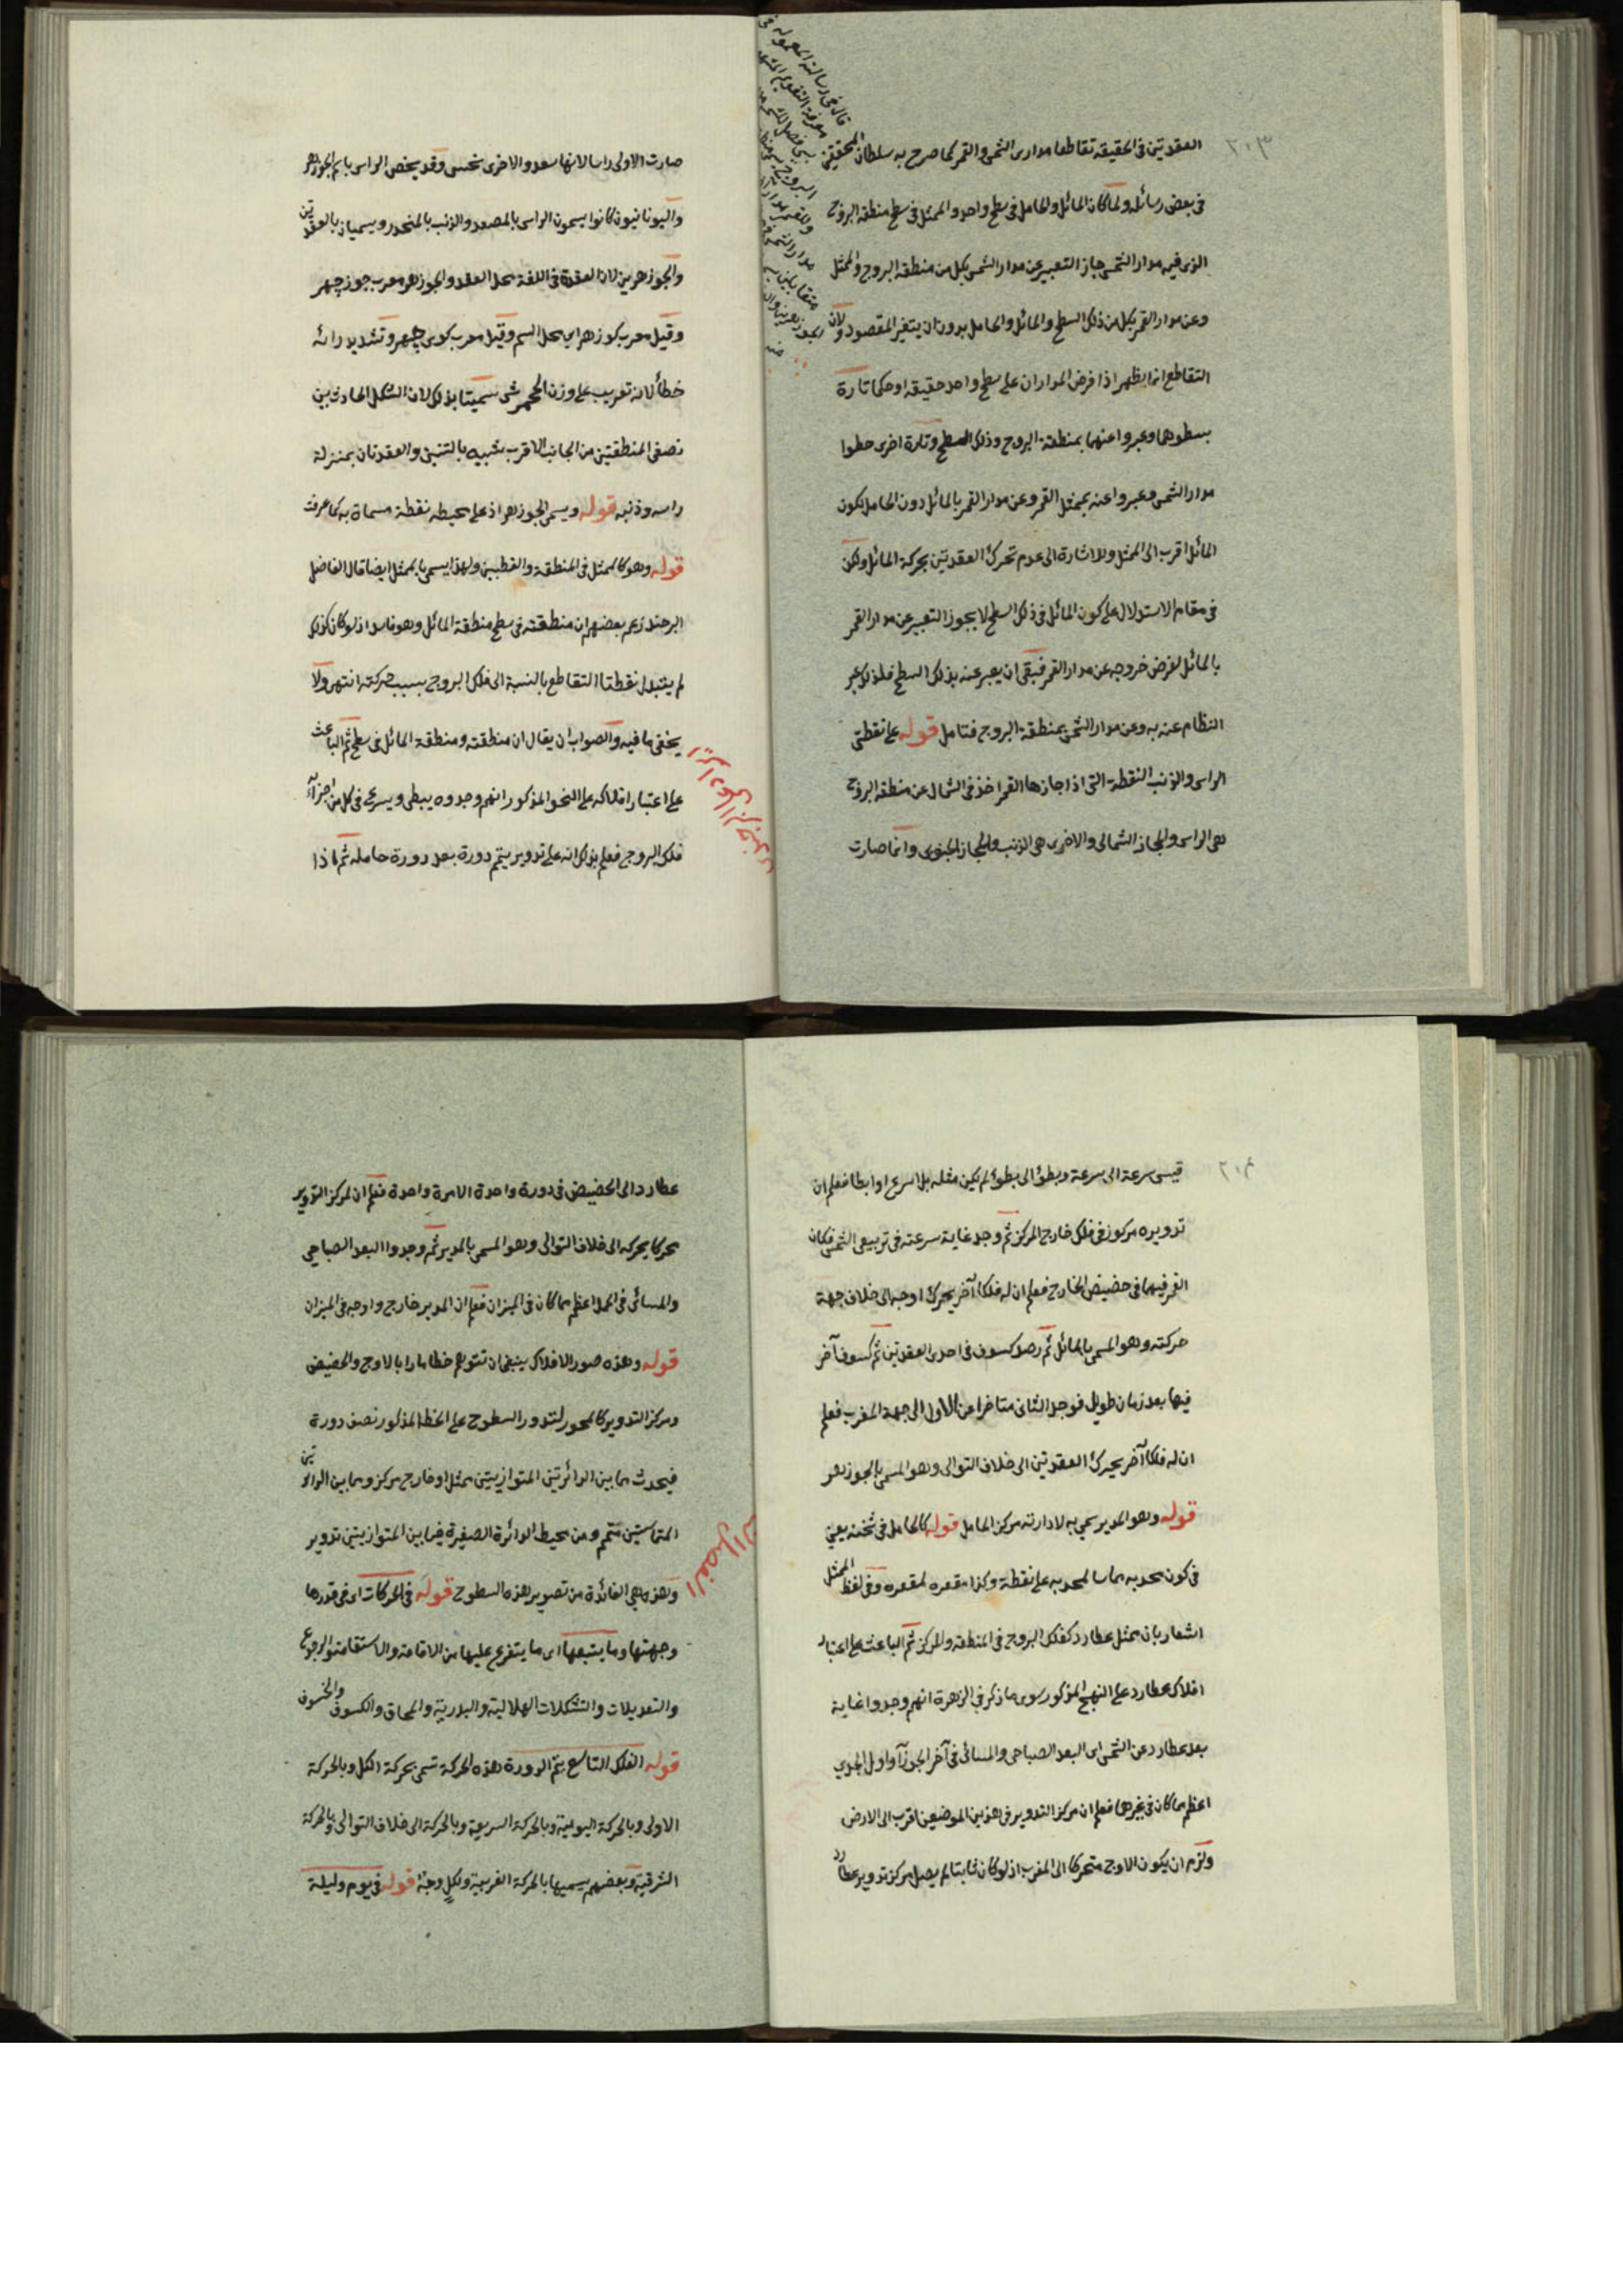 ٢٠٣
العقدتين فى الحقيقة تقاطعا مدارى الشمس والقمر كما صرح به سلطان المحققين
فى بعض رسائله ولما كان المائل والحامل فى سطح واحد والممثل فى سطح منطقة البروج
الذى فيه مدار الشمس جاز التعبير عن مدار الشمس بكل من منطقة البروج والممثل
وعن مدار القمر بكل من ذلك السطح والمائل والحامل بدون ان يتغير المقصود ولان
التقاطع انما يظهر اذا فرض المداران على سطح واحد حقيقة او حكما تارة
بسطوهما وعبروا عنهما بمنطقة البروج وذلك السطح وتارة اخرى حطوا
مدار الشمس وعبروا عنه بممثل القمر وعن مدار القمر بالمائل دون الحامل لكون
المائل اقرب الى الممثل وللاشارة الى عدم تحرك العقدتين بحركة المائل ولكن
فى مقام الاستدلال على كون المائل فى ذلك السطح لا يجوز التعبير عن مدار القمر
بالمائل لفرض خروجه عن مدار القمر فبقى ان يعبر عنه بذلك السطح فلذلك عبر
النظام عنه به وعن مدار الشمس بمنطقة البروج فتامل قوله على نقطتى
الراس والذنب النقطة التى اذا جازها القمر اخذ فى الشمال عن منطقة البروج
هى الراس والمجاز الشمالى والاخرى هى الذنب والمجاز الجنوبى وانما صارت
قال فى رسالته المعمولة فى
معرفة التقويم
صارت الاولى راسا لانها سعد والاخرى نحس وقد يخص الراس باسم الجوزهر
واليونانيون كانوا يسمون الراس بالمصعد والذنب بالمنحدر ويسميان بالعقدتين
والجوزهرين لان العقدة فى اللغة محل العقد والجوزهر معرب جوزچهر
وقيل معرب كوزهر اى محل السم وقيل معرب كوى چهر وتشديد رائه
خطأ لانه تعريب على وزن الجحمرش سميتا بذلك لان الشكل الحادث بين
نصفى المنطقتين من الجانب الاقرب شبيه بالتنين والعقدتان بمنزلة
راسه وذنبه قوله ويسمى الجوزهر اذ على محيطه نقطة مسماة به كما عرفت
قوله وهو كالممثل فى المنطقة والقطبين ولهذا يسمى بالممثل ايضا قال الفاضل
البرجندى زعم بعضهم ان منطقته فى سطح منطقة المائل وهو فاسد اذ لو كان كذلك
لم يتبدل نقطتا التقاطع بالنسبة الى فلك البروج بسبب حركته انتهى ولا
يخفى ما فيه والصواب ان يقال ان منطقته ومنطقة المائل فى سطح ثم الباعث
على اعتبار افلاكه على النحو المذكور انهم وجدوه يبطى ويسرع فى كل من اجزاء
فلك البروج فعلم بذلك انه على تدوير يتم دورة بعد دورة حامله ثم اذا
٢٠٤
قيس سرعة الى سرعة وبطؤ الى بطؤ لم يكن مثله بل اسرع او ابطا فعلم ان
تدويره مركوز فى فلك خارج المركز ثم وجد غاية سرعته فى تربيعى الشمس فكان
القمر فيهما فى حضيض الخارج فعلم ان له فلكا آخر يحرك اوجه الى خلاف جهة
حركته وهو المسمى بالمائل ثم رصد كسوف فى احدى العقدتين ثم كسوف آخر
فيها بعد زمان طويل فوجد الثانى متاخرا عن الاول الى جهة المغرب فعلم
ان له فلكا آخر يحرك العقدتين الى خلاف التوالى وهو المسمى بالجوزهر
قوله وهو المدير سمى به لادارته مركز الحامل قوله كالحامل فى ثخنه يعنى
فى كون محدبه مماسا لمحدبه على نقطة وكذا مقعره لمقعره وفى لفظ الممثل
اشعار بان ممثل عطارد كفلك البروج فى المنطقة والمركز ثم الباعث على اعتبار
افلاك عطارد على النهج المذكور سوى ما ذكر فى الزهرة انهم وجدوا غاية
بعد عطارد عن الشمس اى البعد الصباحى والمسائى فى آخر الجوزآ واول الجدى
اعظم مما كان فى غيرهما فعلم ان مركز التدوير فى هذين الموضعين اقرب الى الارض
ولزم ان يكون الاوج متحركا الى المغرب اذ لو كان ثابتا لم يصل مركز تدوير عطارد
عطارد الى الحضيض فى دورة واحدة الا مرة واحدة فعلم ان لمركز التدوير
محركا يحركه الى خلاف التوالى وهو المسمى بالمدير ثم وجدوا البعد الصباحى
والمسائى فى الحمل اعظم مما كان فى الميزان فعلم ان المدير خارج واوجه فى الميزان
قوله وهذه صور الافلاك ينبغى ان تتوهم خطا مارا بالاوج والحضيض
ومركز التدوير كالمحور لتدور السطوح على الخط المذكور نصف دورة
فيحدث مما بين الدائرتين المتوازيتين ممثل او خارج مركز ومما بين الدائرتين
المتماستين متمم ومن محيط الدائرة الصغيرة فيما بين المتوازيتين تدوير
وهذه هى الفائدة من تصوير هذه السطوح قوله فى الحركات اى فى قدرها
وجهتها وما يتبعها اى ما يتفرع عليها من الاقامة والاستقامة والرجوع
والتعديلات والتشكلات الهلالية والبدرية والمحاق والكسوف والخسوف
قوله الفلك التاسع يتم الدورة هذه الحركة تسمى بحركة الكل وبالحركة
الاولى وبالحركة اليومية وبالحركة السريعة وبالحركة الى خلاف التوالى وبالحركة
الشرقية وبعضهم يسميها بالحركة الغربية ولكل وجهة قوله فى يوم وليلة